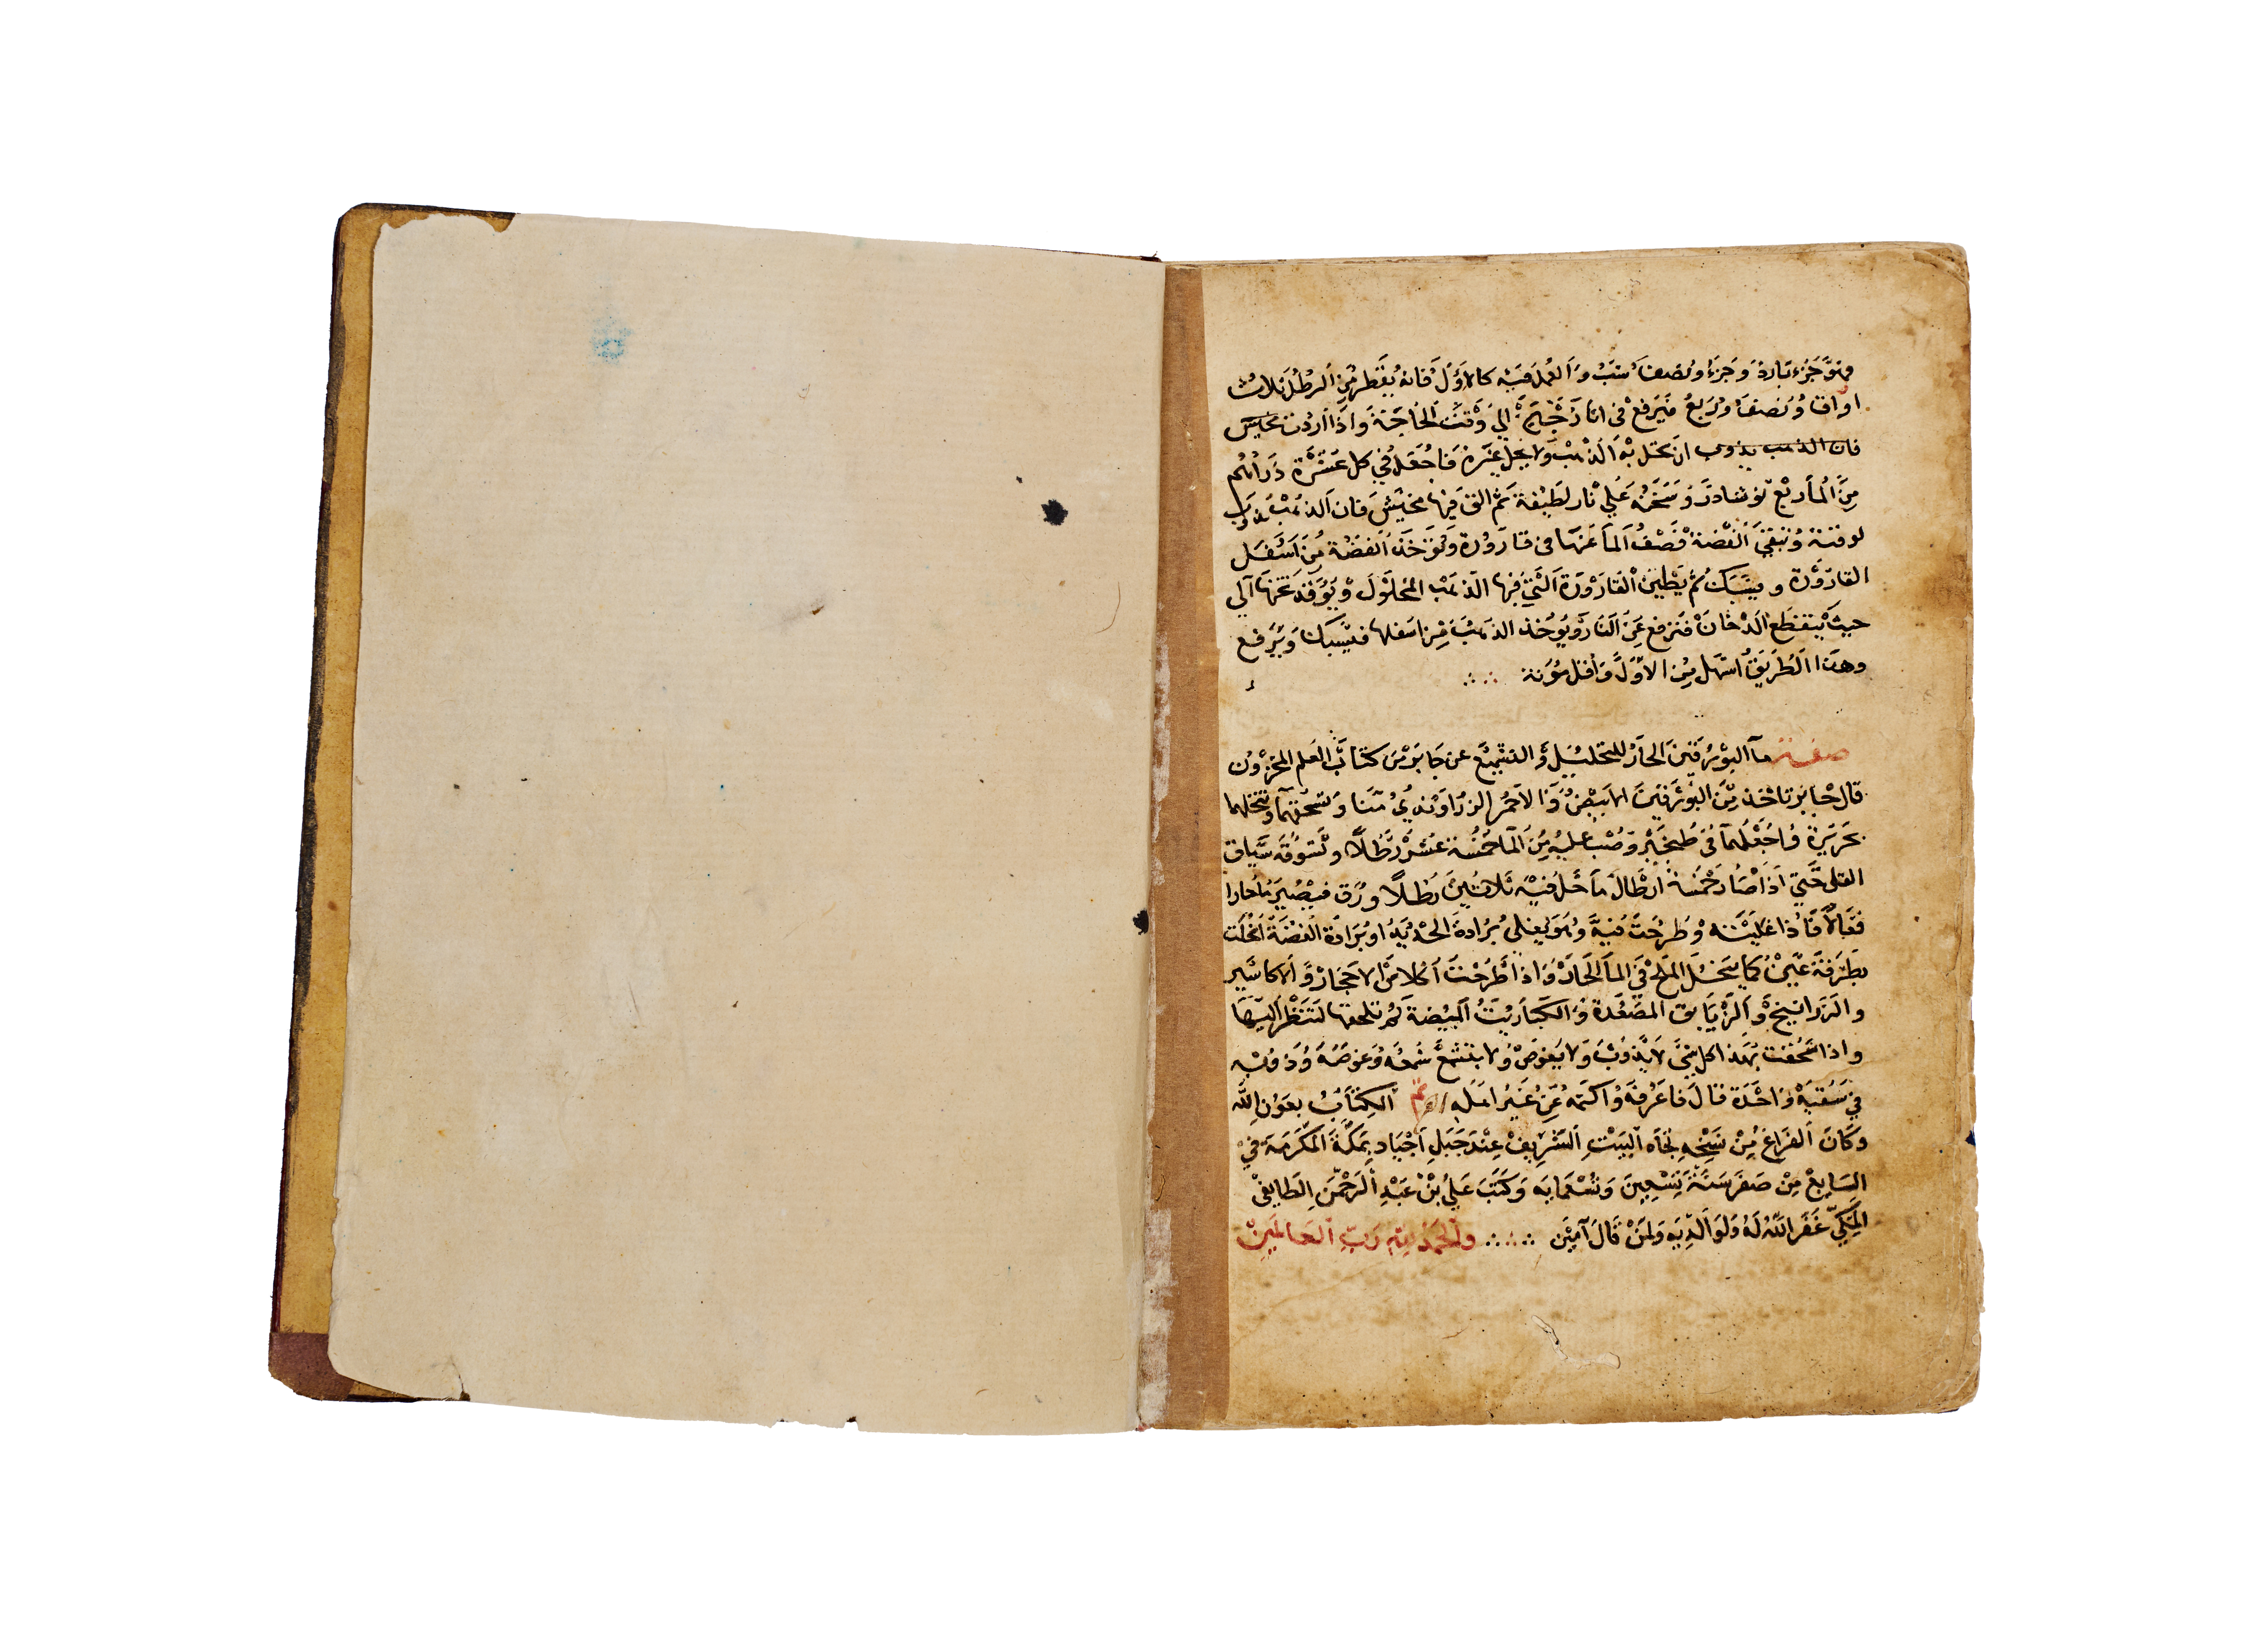 وهو جزء بارود وجزء ونصف شب والعمل فيه كالاول فانه يقطر من الرطل ثلاث
اواق ونصف وربع فيرفع في اناء زجاج الي وقت الحاجة واذا اردت
فان الذهب يذوب ان تحل به الذهب ولا يحل غيره فاجعل في كل عشرة دراهم
من الما ربع نوشادر وسخنه علي نار لطيفة ثم الق فيها فان الذهب يذوب
لوقته وتبقي الفضة فصف الما عنها في قارورة وتوخذ الفضة من اسفل
القارورة ويسبك ثم يطين القارورة التي فيها الذهب المحلول ويوقد تحتها الي
حيث ينقطع الدخان فترفع عن النار ويوخذ الذهب من اسفلها فيسبك ويرفع
وهذا الطريق اسهل من الاول واقل مؤنة
صفة ما البورقين الحار للتحليل والتشميع عن جابر من كتاب العلم المخزون
قال جابر تاخذ من البورقين الابيض والاحمر الزراوندي منا وتسحقهما وتنخلهما
بحريرة واجعلهما في طنجير وصب عليه من الما خمسة عشر رطلا وتسوقه سياق
القلي حتي اذا صار خمسة ارطال ما حل فيه ثلاثين رطلا ورق فيصير ما حارا
فعالا فاذا غليته وطرحت فيه وهو يغلي برادة الحديد او برادة الفضة انحلت
بطرفة عين كما ينحل الملح في الما الحار واذا طرحت الاملاح الاحجار والاكاسير
والزرانيخ والزيابق المصعدة والكباريت المبيضة
واذا سحقت بهذا كل شي لا يذوب ولا يغوص ولا يتشمع شمعه وغوصه وذوبه
في سقية واحدة قال فاعرفه واكتمه عن غير اهله تم الكتاب بعون الله
وكان الفراغ من نسخه تجاه البيت الشريف عند جبل اجياد بمكة المكرمة في
السابع من صفر سنة تسعين وتسعمايه وكتب علي بن عبد الرحمن الطايفي
المكي غفر الله له ولوالديه ولمن قال آمين والحمد لله رب العالمين